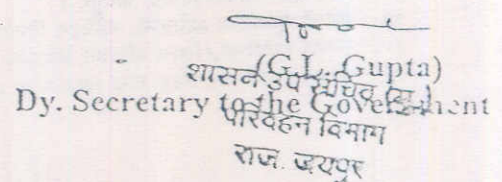 (G.L. Gupta)
शासन उप सचिव
Dy. Secretary to the Government
परिवहन विभाग
राज. जयपुर